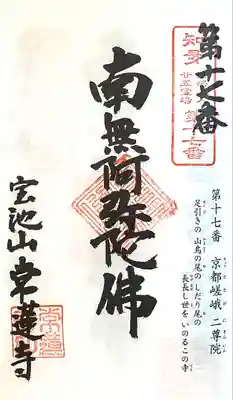 第十七番
知多
廿五霊場
第十七番
第十七番 京都嵯峨 二尊院
足引きの 山鳥の尾の しだり尾の
長長し世を いのるこの寺
南無阿弥陀佛
宝池山 常蓮寺